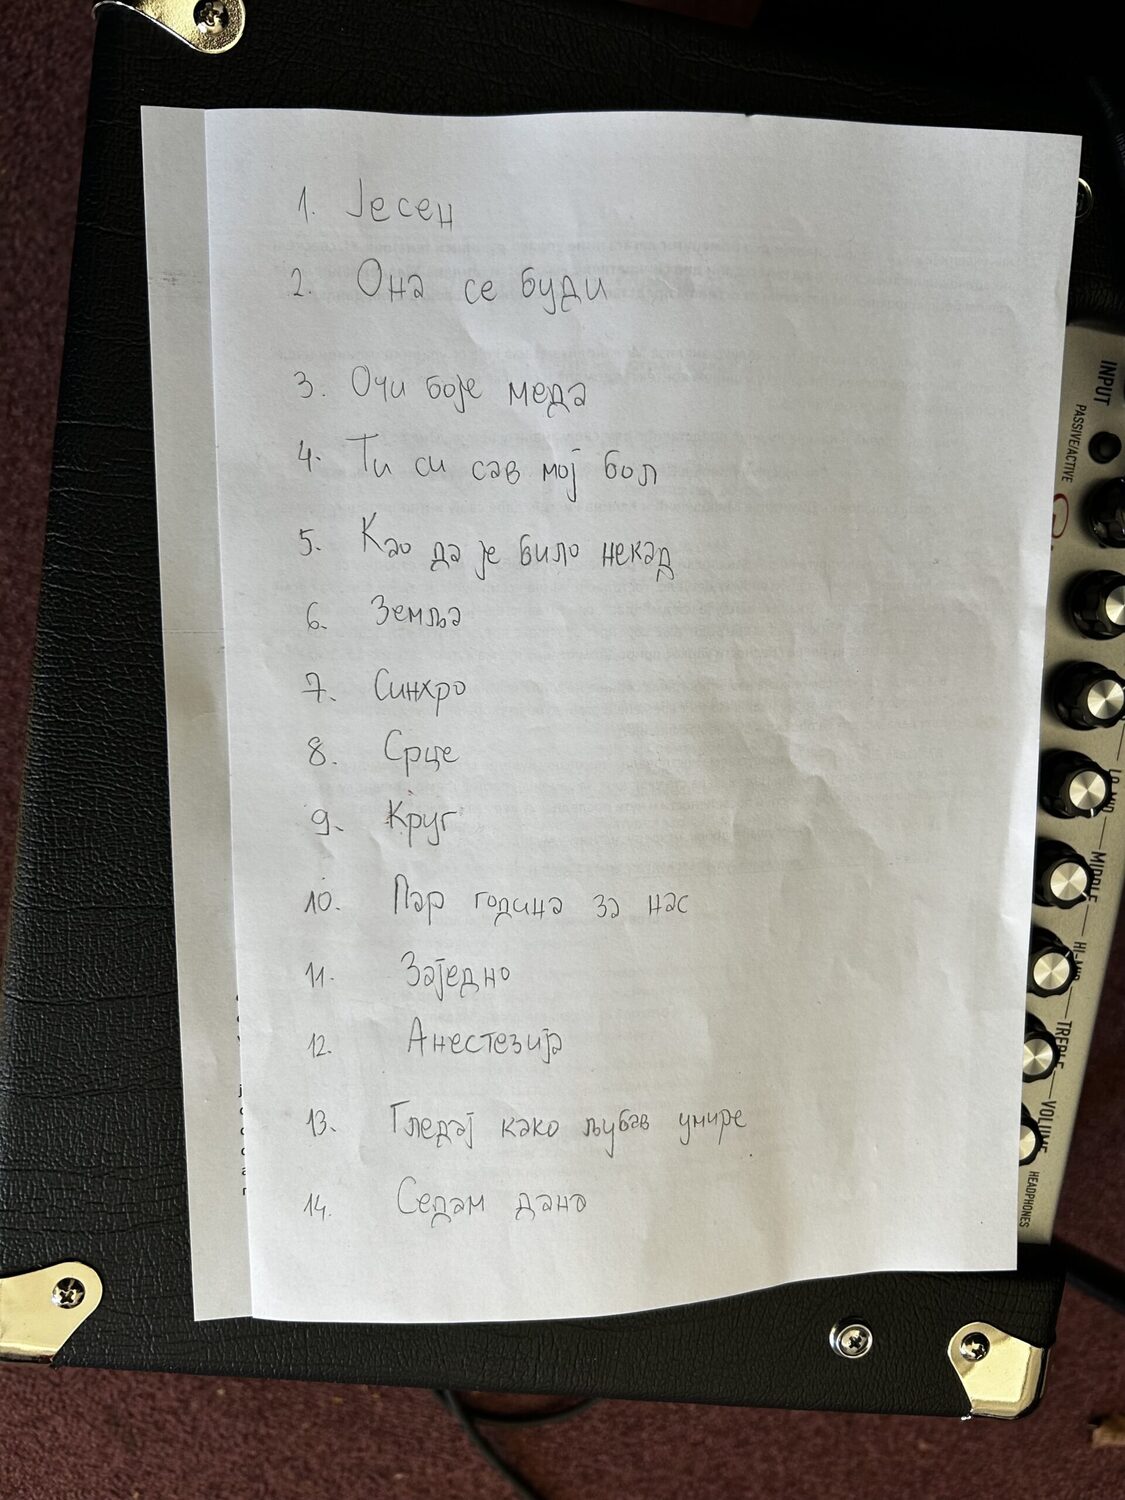 1. Јесен
2. Она се буди
3. Очи боје меда
4. Ти си сав мој бол
5. Као да је било некад
6. Земља
7. Синхро
8. Срце
9. Круг
10. Пар година за нас
11. Заједно
12. Анестезија
13. Гледај како љубав умире
14. Седам дана
INPUT
PASSIVE/ACTIVE
LO-MID
MIDDLE
HI-MID
TREBLE
VOLUME
HEADPHONES